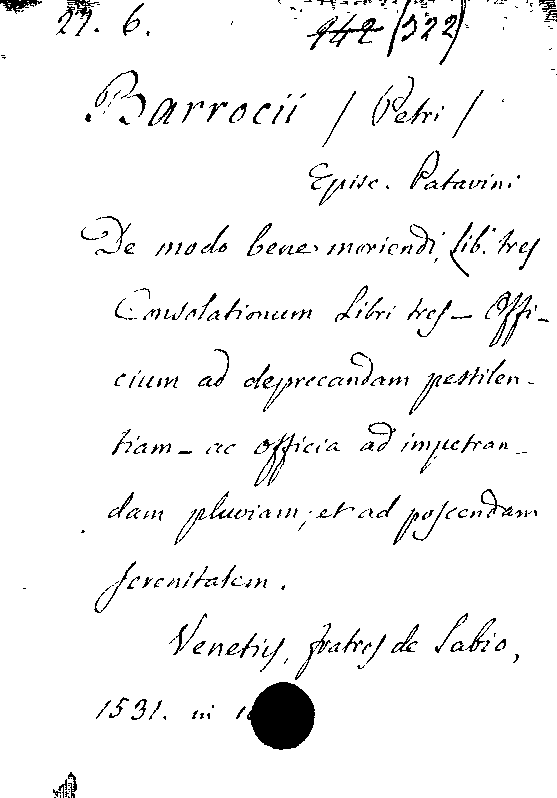 27. 6. 142 (322)
Barrocii / Petri /
Episc. Patavini
De modo bene moriendi, Lib. tres
Consolationum Libri tres – Offi-
cium ad deprecandam pestilen-
tiam – ac officia ad impetran-
dam pluviam, et ad poscendam
serenitatem.
Venetiis, fratres de Sabio,
1531. in